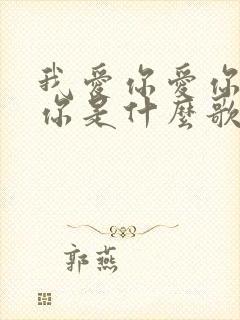 我愛你愛你
你是什麼歌
郭燕